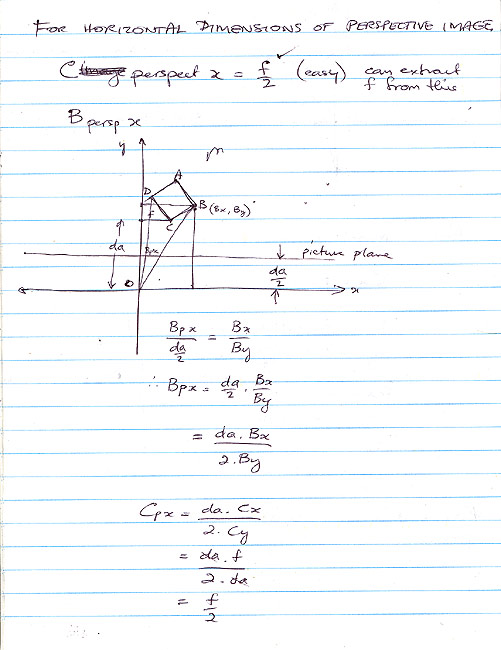 FOR HORIZONTAL DIMENSIONS OF PERSPECTIVE IMAGE
C perspect x = f/2 (easy) can extract
f from this
B persp x
y
A
D
B (Bx, By)
f
C
da
picture plane
da/2
O
x
Bpx / (da/2) = Bx/By
∴ Bpx = da/2 . Bx/By
= da. Bx / 2. By
Cpx = da. Cx / 2. Cy
= da. f / 2. da
= f/2